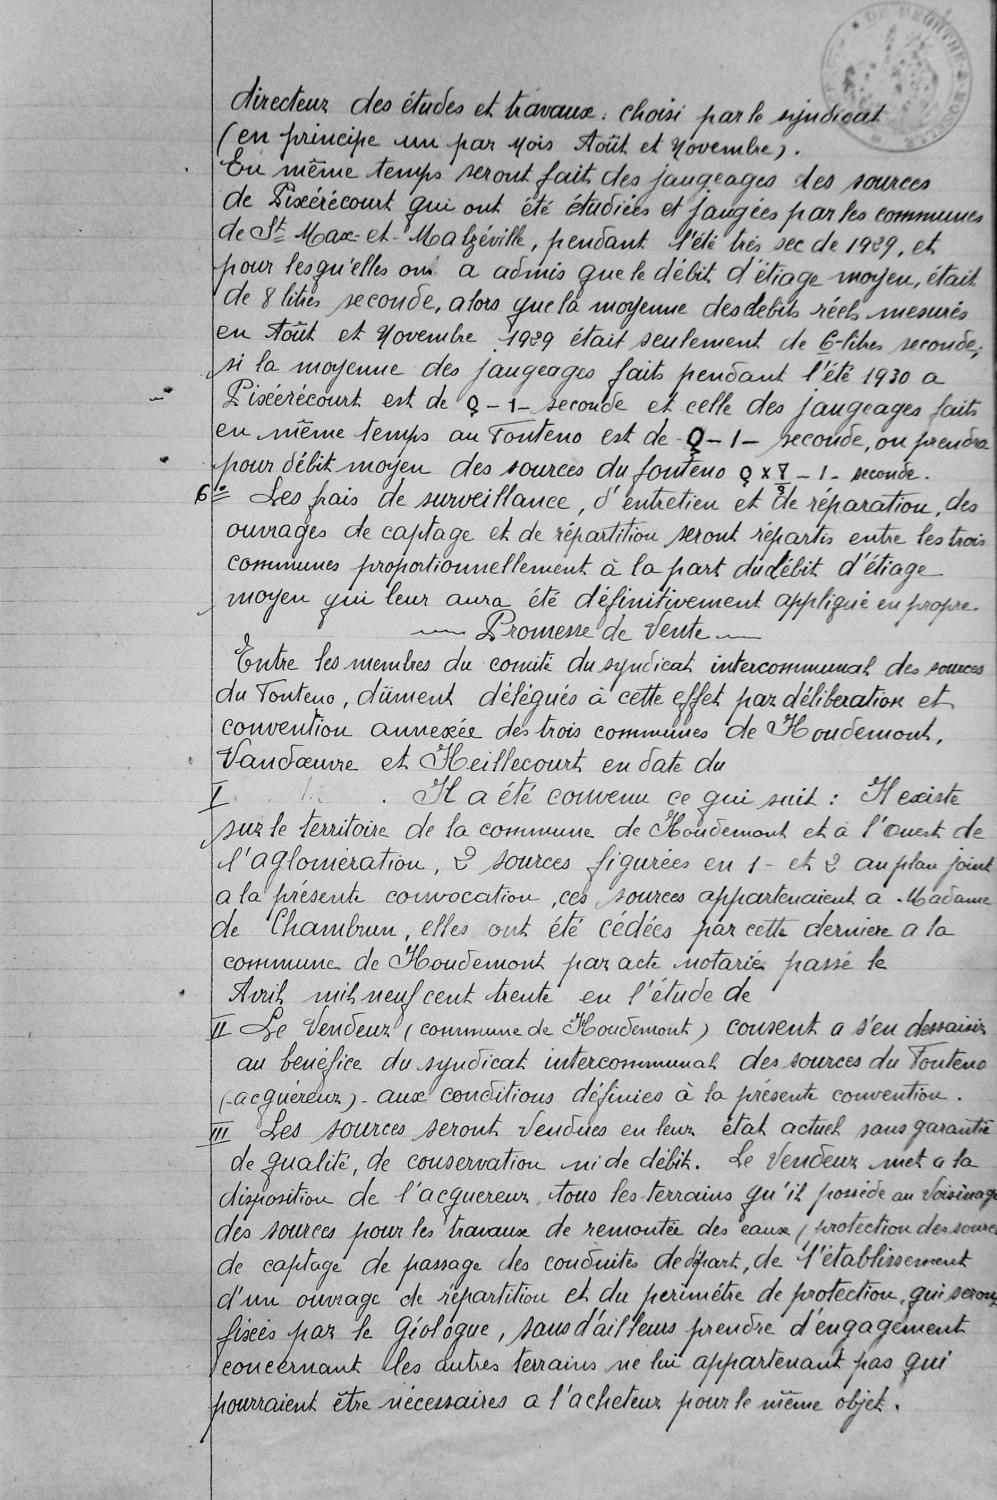 directeur des études et travaux choisi par le syndicat
(en principe un par mois Août et Novembre).
En même temps seront fait des jaugeages des sources
de Pixérécourt qui ont été étudiées et jaugées par les communes
de St Max-et-Malzéville, pendant l'été très sec de 1929, et
pour lesqu'elles on a admis que le débit d'étiage moyen, était
de 8 litres seconde, alors que la moyenne des debits réels mesurés
en Août et Novembre 1929 était seulement de 6-litres seconde;
si la moyenne des jaugeages faits pendant l'été 1930 a
Pixérécourt est de Q-1- seconde et celle des jaugeages faits
en même temps au Fonteno est de Q-1- seconde, on prendra
pour débit moyen des sources du fonteno Q x - 1 - seconde.
6° Les frais de surveillance, d'entretien et de réparation, des
ouvrages de captage et de répartition seront répartis entre les trois
communes proportionnellement à la part du débit d'étiage
moyen qui leur aura été définitivement appliqué en propre.
Promesse de Vente
Entre les membres du comité du syndicat intercommunal des sources
du Fonteno, dûment délégués à cette effet par déliberation et
convention annexée des trois communes de Houdemont,
Vandœuvre et Heillecourt en date du
I . Il a été convenu ce qui suit : Il existe
sur le territoire de la commune de Houdemont et à l'ouest de
l'aglomération, 2 sources figurées en 1 - et 2 au plan joint
a la présente convocation, ces sources appartenaient a Madame
de Chambrun, elles ont été cédées par cette derniere a la
commune de Houdemont par acte notarié passé le
Avril mil neuf cent trente en l'étude de
II Le Vendeur (commune de Houdemont) consent a s'en dessaisir
au benéfice du syndicat intercommunal des sources du Fonteno
(-acquéreur)- aux conditions définies à la présente convention.
III Les sources seront Vendues en leur état actuel sans garantie
de qualité, de conservation ni de débit. Le Vendeur met a la
disposition de l'acquereur tous les terrains qu'il possède au voisinage
des sources pour les travaux de remontée des eaux (protection des sources
de captage de passage des conduites de départ, de l'établissement
d'un ouvrage de répartition et du perimétre de protection, qui seront
fixées par le Géologue, sans d'ailleurs prendre d'engagement
concernant les autres terrains ne lui appartenant pas qui
pourraient être nécessaires a l'acheteur pour le même objet.